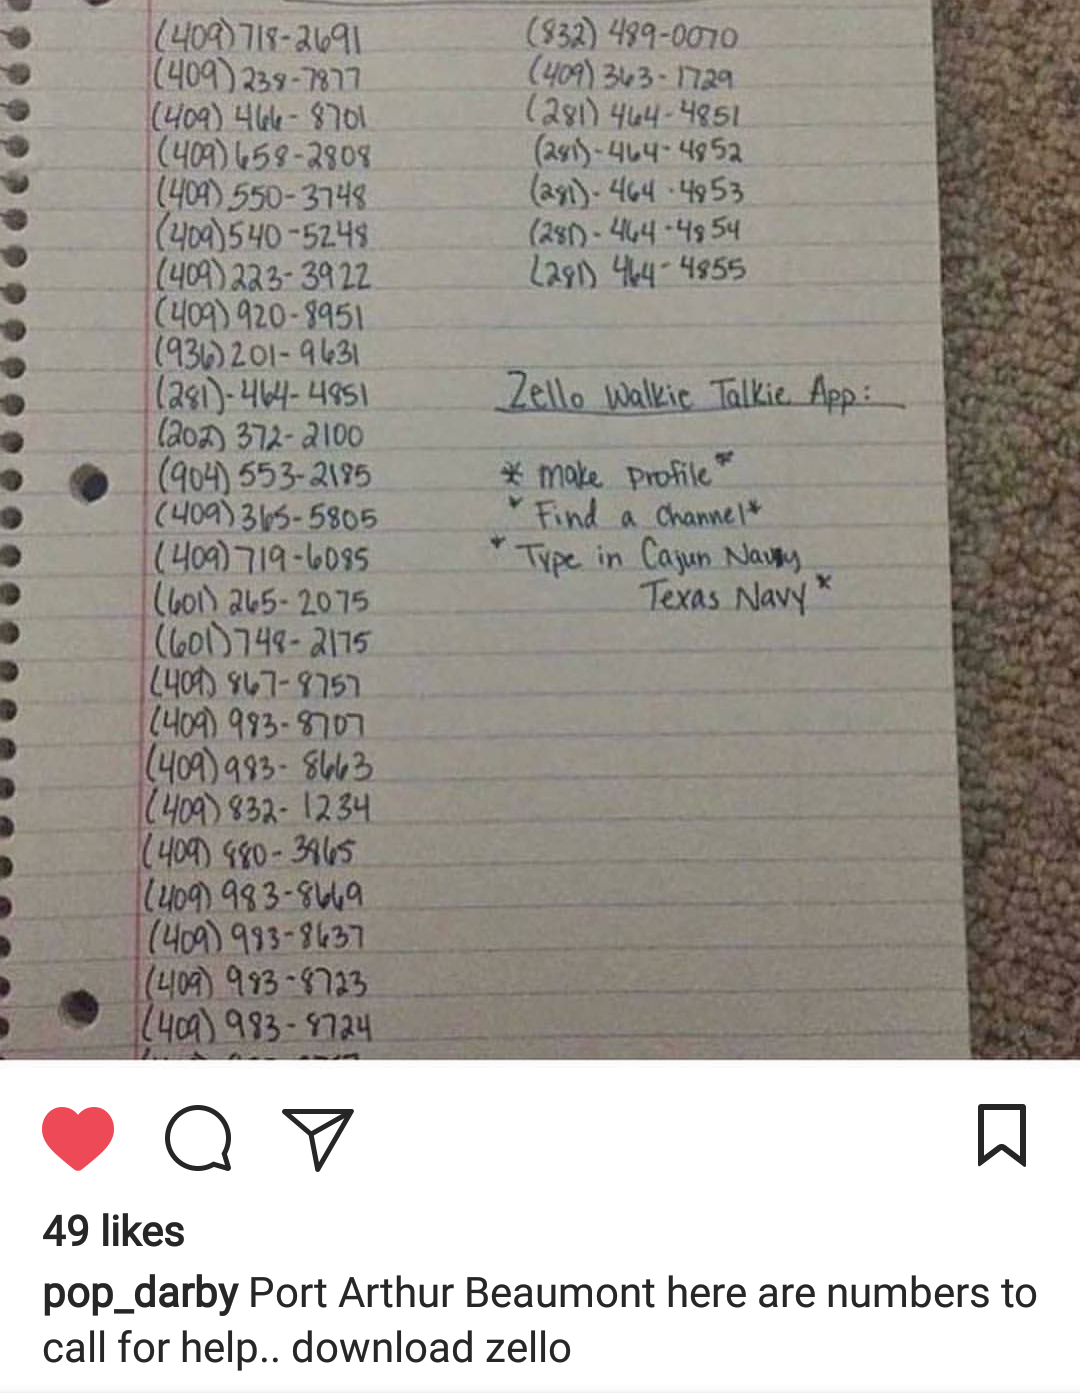 (409)718-2691
(409)238-7877
(409) 466-8701
(409)658-2808
(409)550-3748
(409)540-5248
(409)223-3922
(409)920-8951
(936)201-9631
(281)-464-4851
(202) 372-2100
(904)553-2185
(409)365-5805
(409)719-6085
(601) 265-2075
(601)748-2175
(409) 867-8757
(409) 983-8707
(409)983-8663
(409)832-1234
(409) 880-3965
(409) 983-8669
(409) 983-8637
(409) 983-8723
(409) 983-8724
(832) 489-0070
(409) 363-1729
(281) 464-4851
(281)-464-4852
(281)-464-4853
(281)-464-4854
(281) 464-4855
Zello Walkie Talkie App:
* Make Profile*
* Find a Channel*
* Type in Cajun Navy
Texas Navy*
49 likes
pop_darby Port Arthur Beaumont here are numbers to
call for help.. download zello